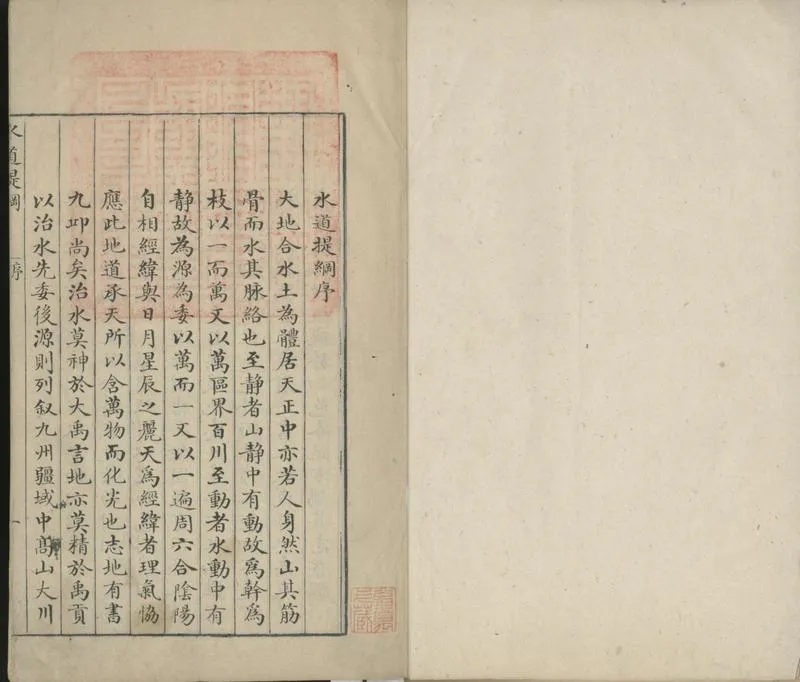 水道提綱序
大地合水土為體居天正中亦若人身然山其筋
骨而水其脉絡也至静者山静中有動故為幹為
枝以一而萬又以萬區界百川至動者水動中有
静故為源為委以萬而一又以一遍周六合陰陽
自相經緯與日月星辰之麗天為經緯者理氣恊
應此地道承天所以含萬物而化光也志地有書
九邱尚矣治水莫神於大禹言地亦莫精於禹貢
以治水先委後源則列叙九州疆域中髙山大川
水道提綱
序
一